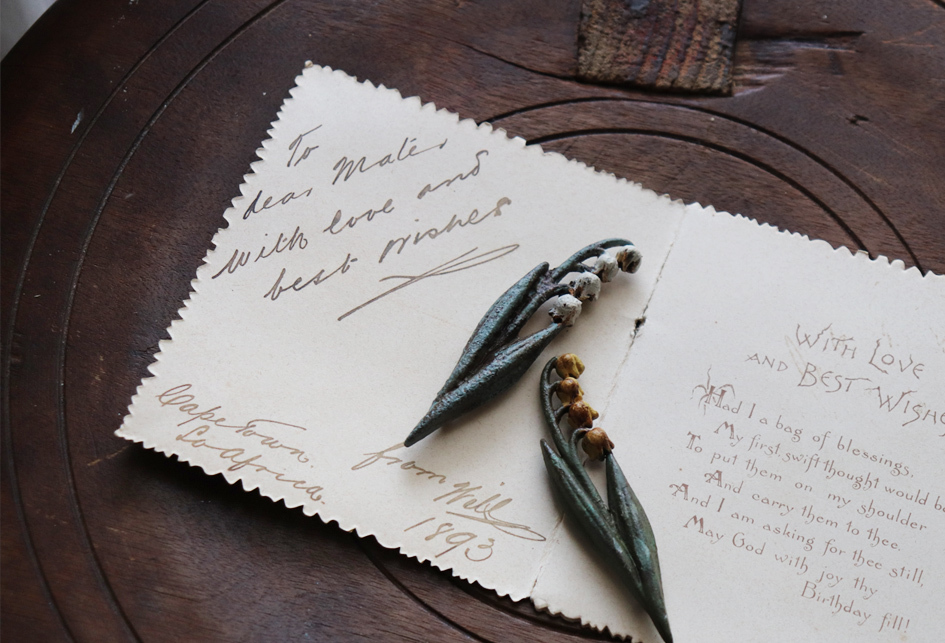 To
dear Mater
with love and
best wishes
Cape Town.
So Africa.
from Will
1893
WITH LOVE
AND BEST WISH
Had I a bag of blessings,
My first swift thought would b
To put them on my shoulder
And carry them to thee.
And I am asking for thee still,
May God with joy thy
Birthday fill!